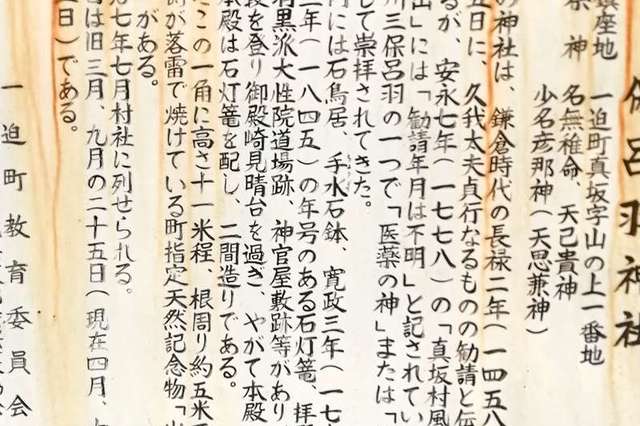 保呂羽神社
鎮座地 一迫町真坂字山の上一番地
神 名無稚命、天己貴神
少名彦那神(天思兼神)
の神社は、鎌倉時代の長禄二年(一四五八
五日に、久我太夫貞行なるものの勧請と伝
るが、安永七年(一七七八)の「真坂村風
山」には「勧請年月は不明」と記されてい
川三保呂羽の一つで「医薬の神」または「
して崇拝されてきた。
内には石鳥居、手水石鉢、寛政三年(一七
二年(一八四五)の年号のある石灯篭、拝
羽黒派大性院道場跡、神官屋敷跡等があり
段を登り御殿崎見晴台を過ぎ、やがて本殿
本殿は石灯篭を配し、二間造りである。
この一角に高さ十一米程、根周り約五米
が落雷で焼けている町指定天然記念物「
がある。
七年七月村社に列せられる。
は旧三月、九月の二十五日(現在四月、
日)である。
一迫町教育委員会